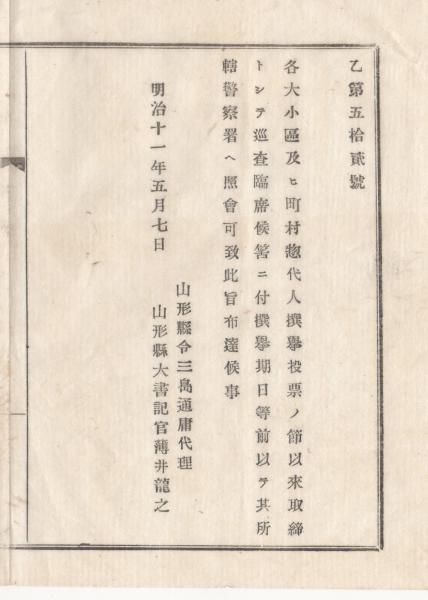 乙第五拾貳號
各大小區及ヒ町村惣代人撰擧投票ノ節以來取締
トシテ巡査臨席候筈ニ付撰擧期日等前以テ其所
轄警察署ヘ照會可致此旨布達候事
明治十一年五月七日
山形縣令三島通庸代理
山形縣大書記官薄井龍之